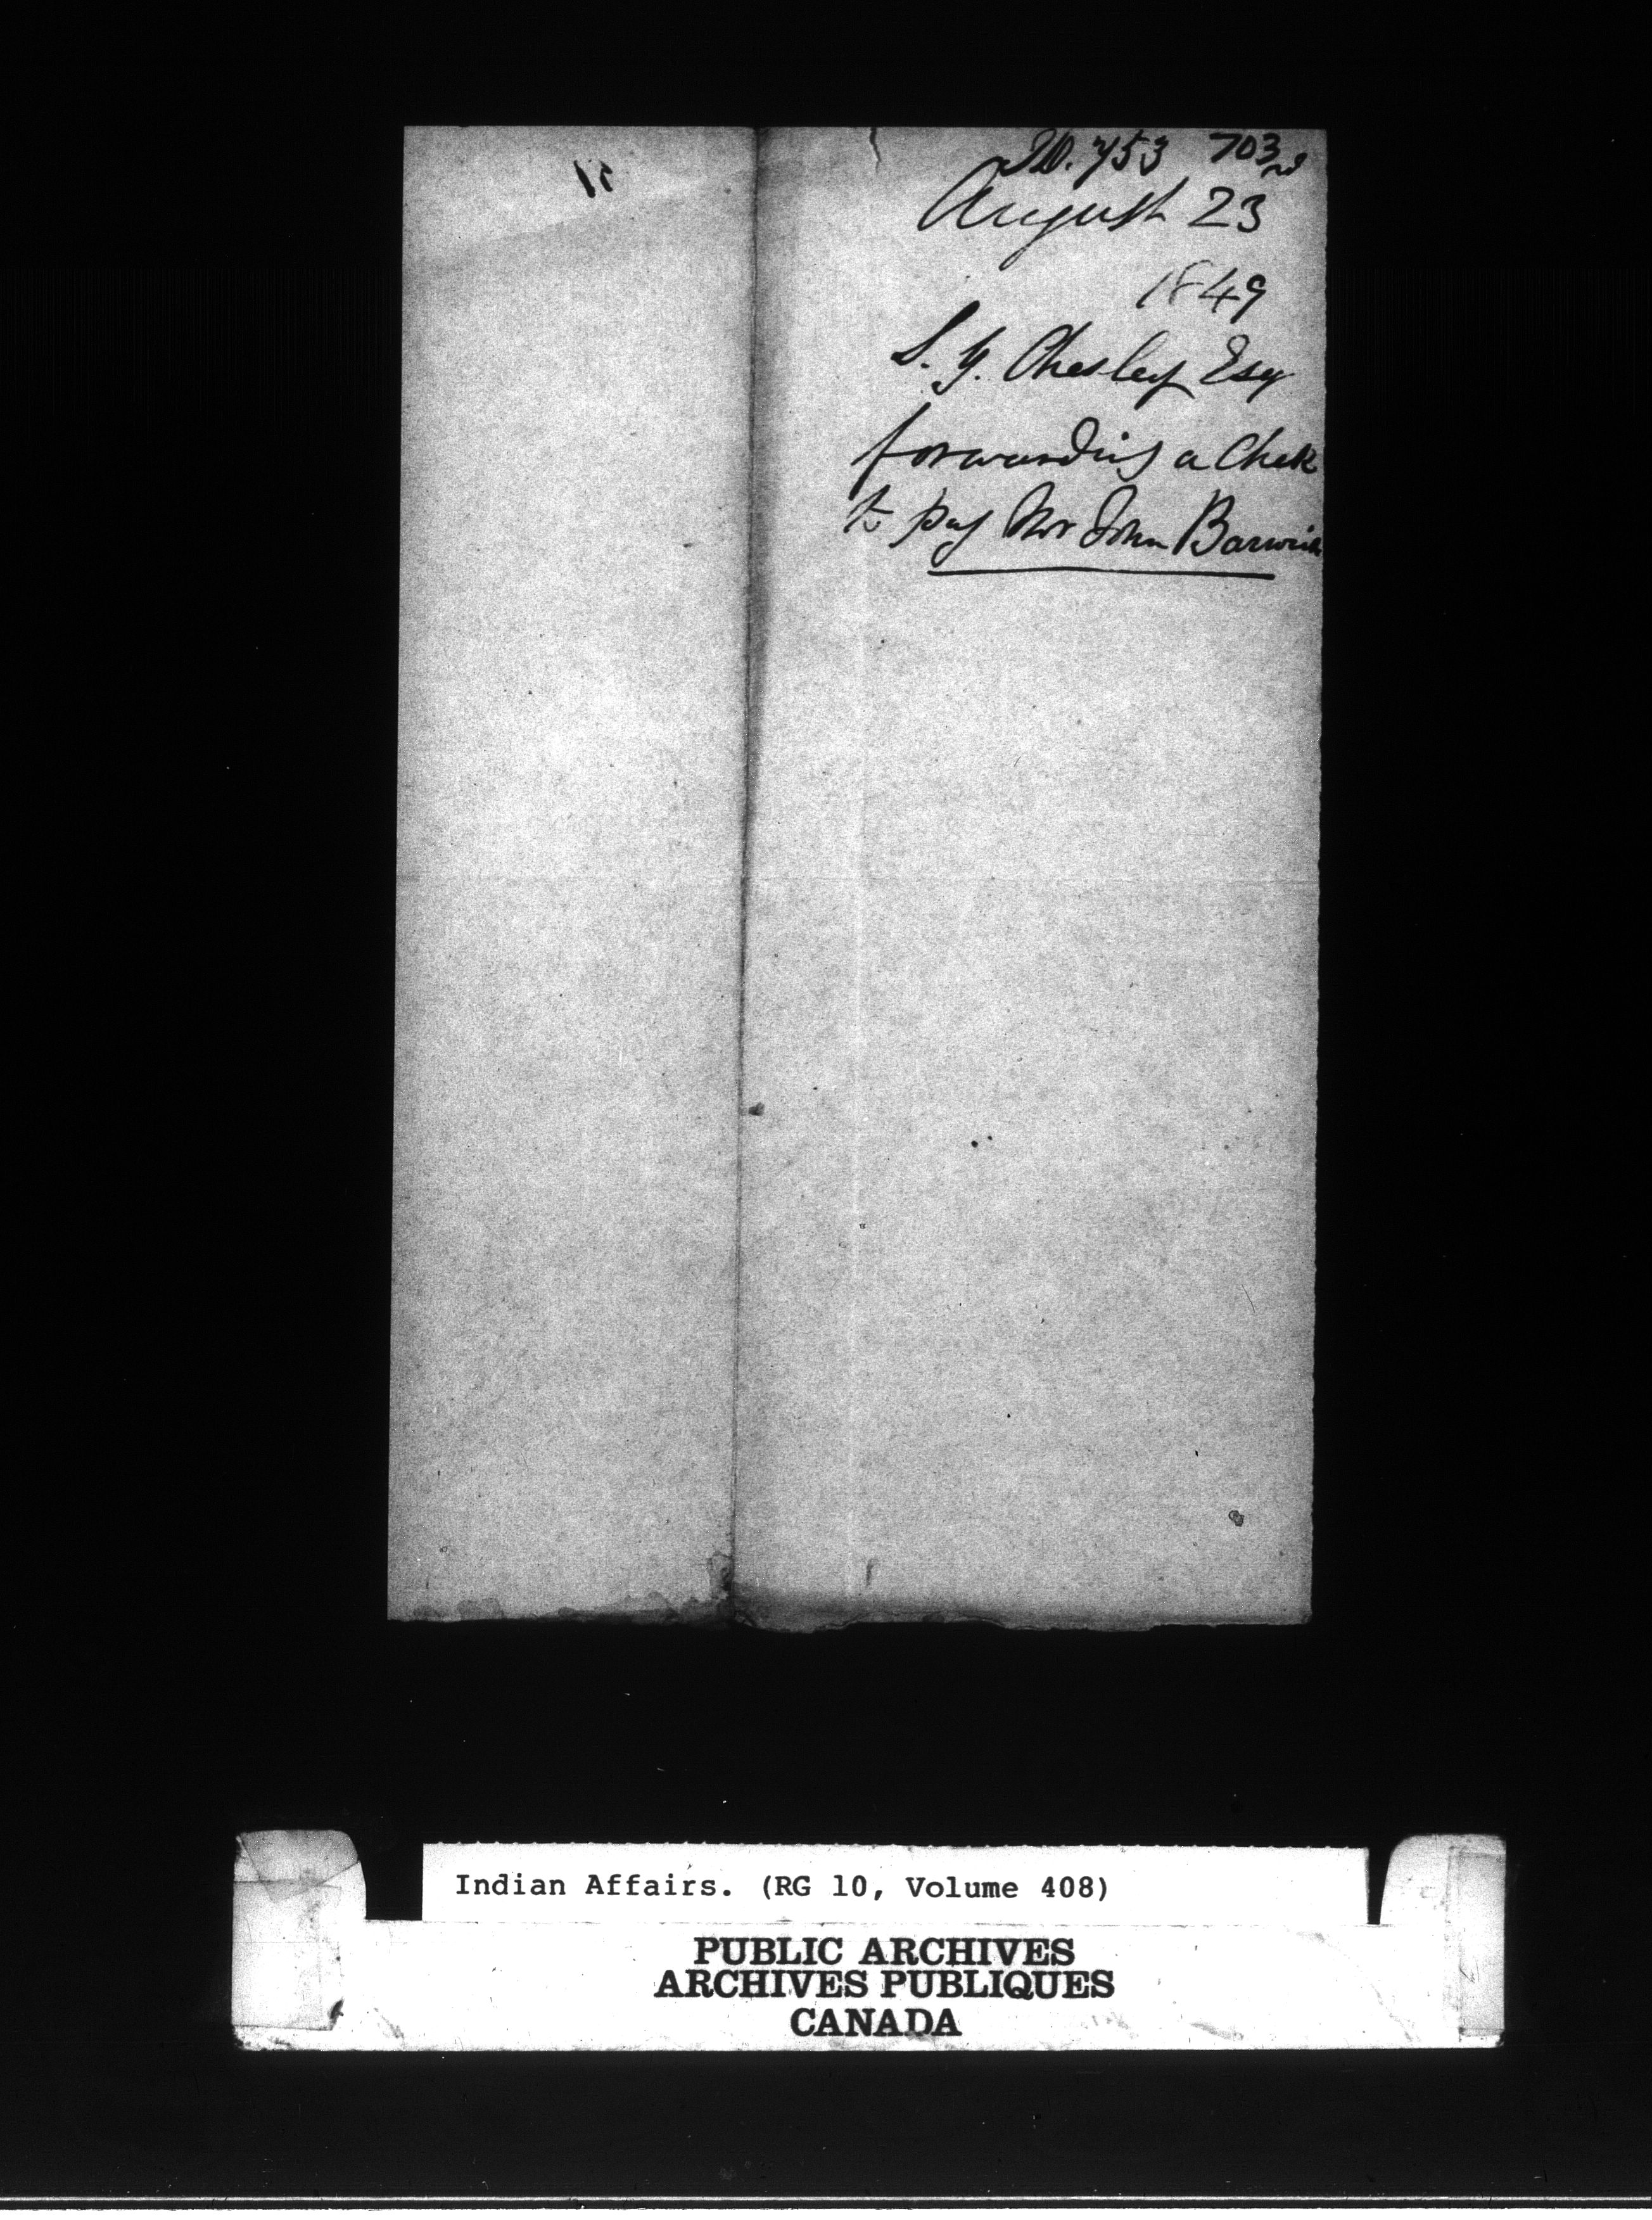 No. 753 703
August 23
1849
S. Y. Chesley Esq
forwarding a Chek
to pay Mr John Barwick
Indian Affairs. (RG 10, Volume 408)
PUBLIC ARCHIVES
ARCHIVES PUBLIQUES
CANADA